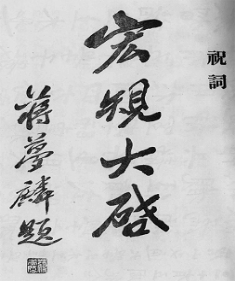 祝詞
宏規大啓
蔣夢麟題